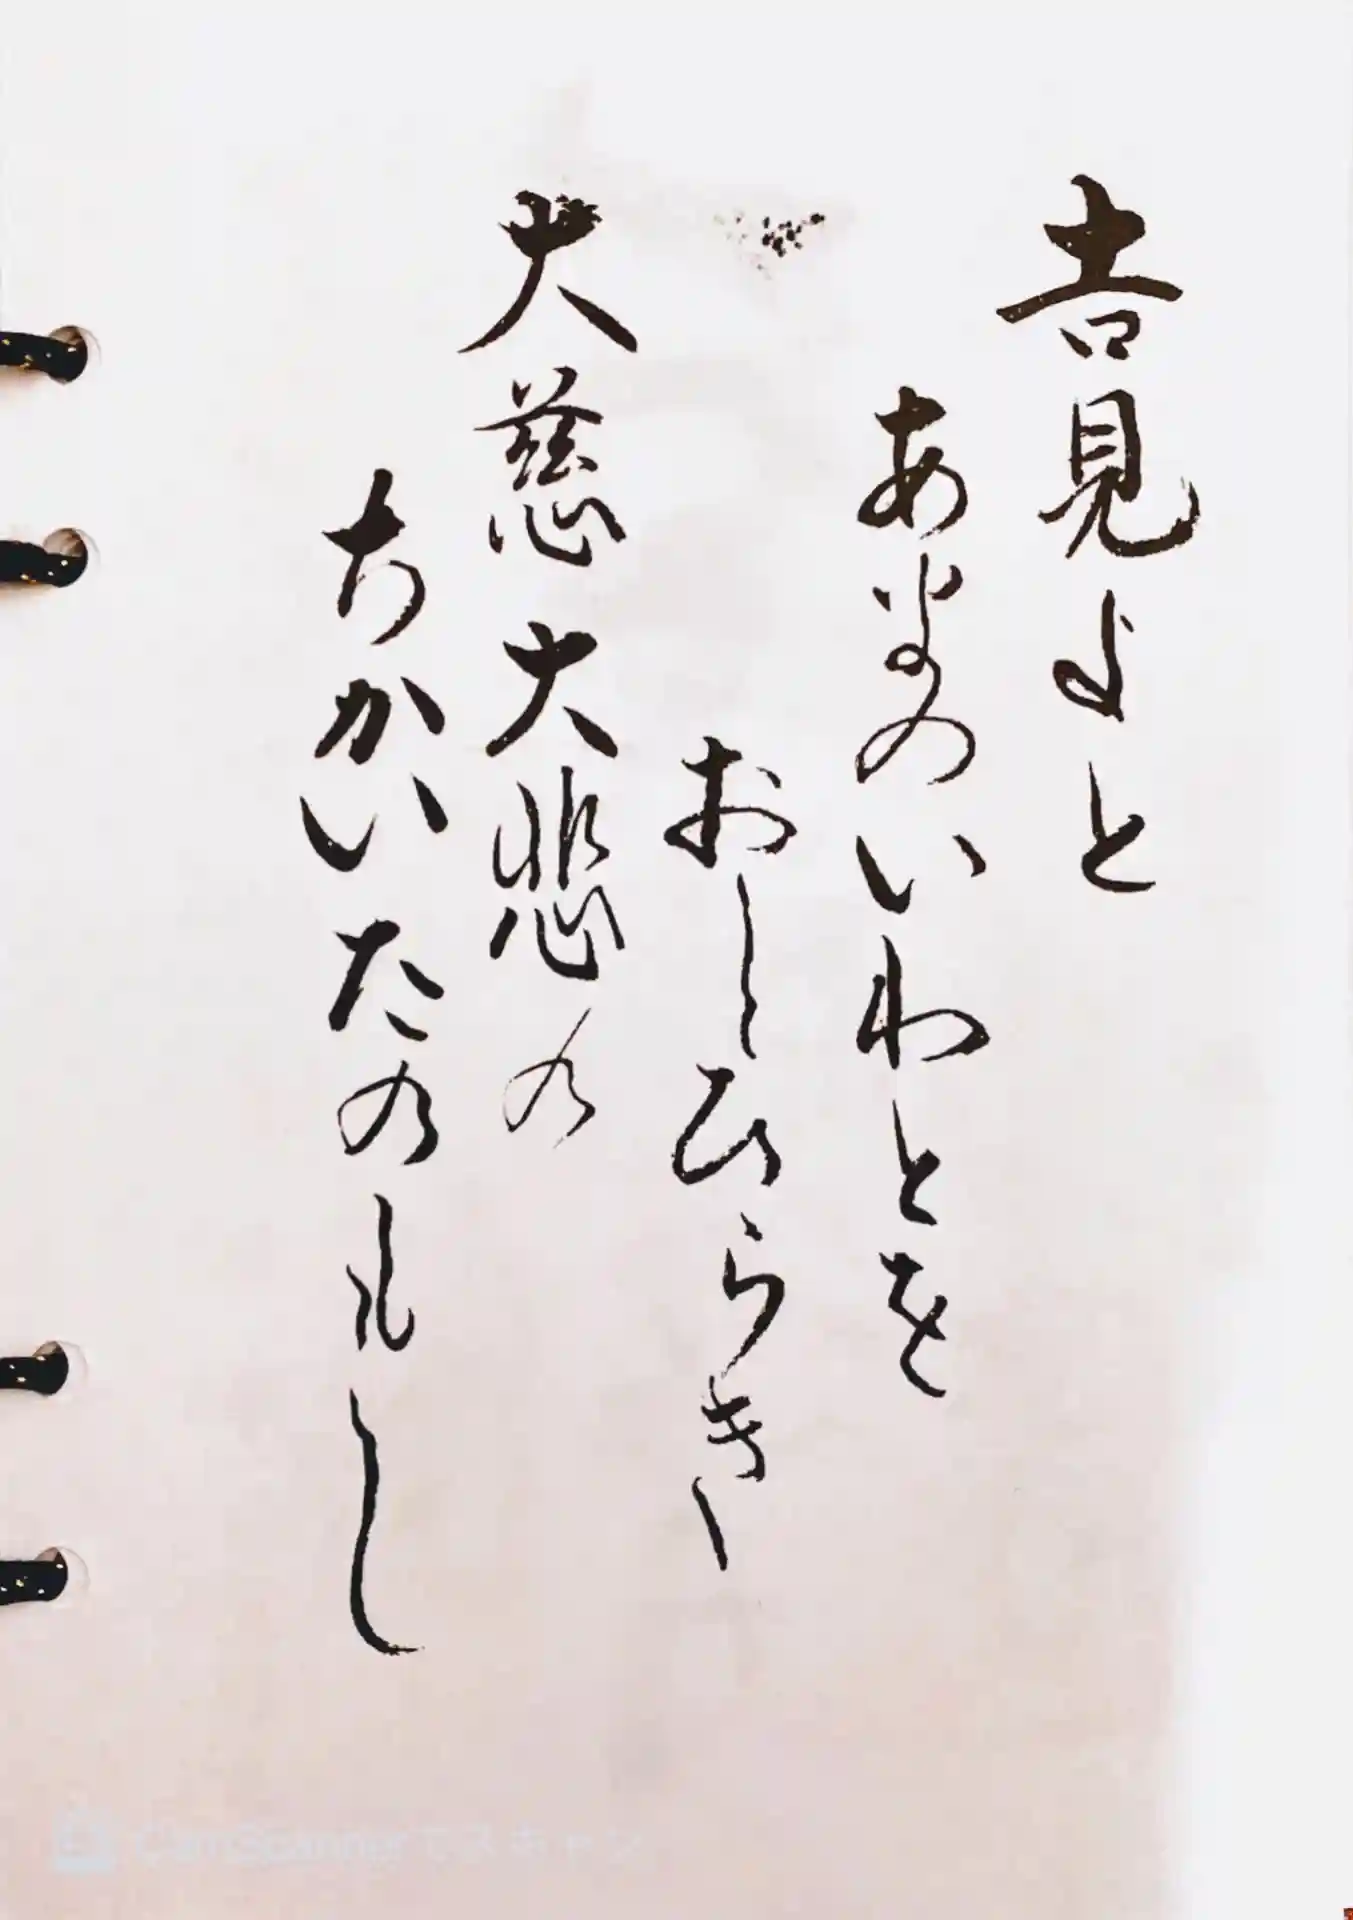 吉見よと
あまのいわとを
おしひらき
大慈大悲の
ちかいたのもし
CamScannerでスキャン